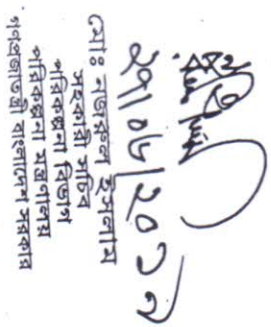 ২৭/০৮/২০১৭
মোঃ নজরুল ইসলাম
সহকারী সচিব
পরিকল্পনা বিভাগ
পরিকল্পনা মন্ত্রণালয়
গণপ্রজাতন্ত্রী বাংলাদেশ সরকার